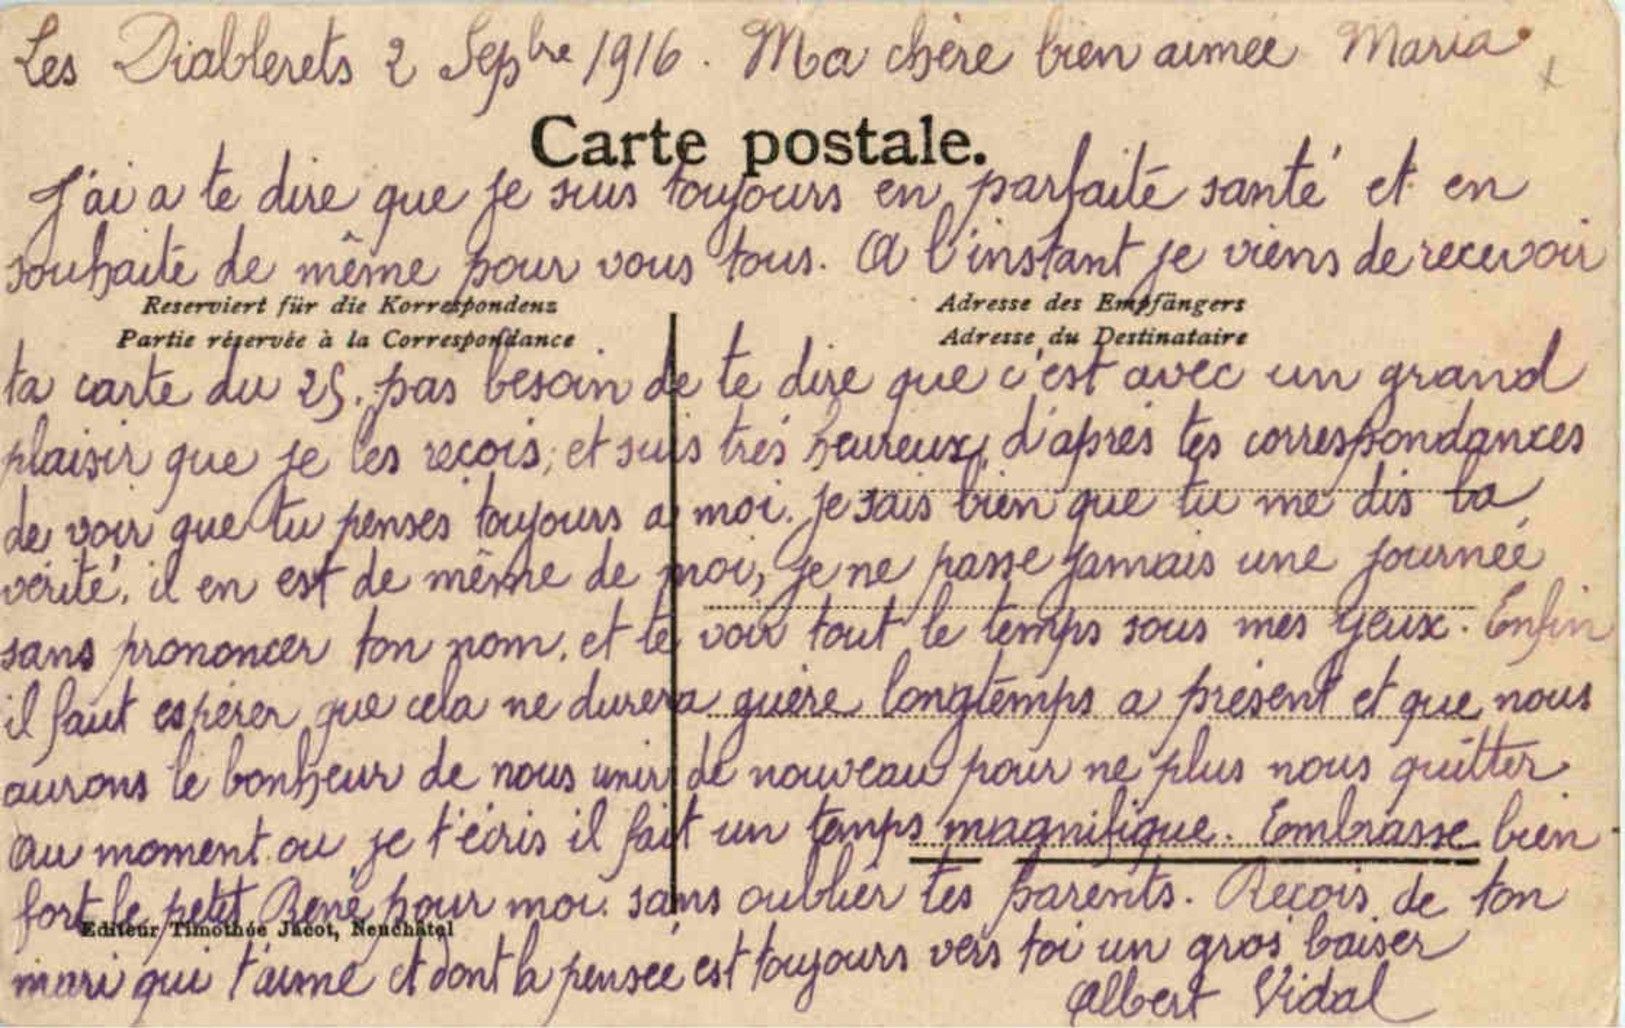 Les Diablerets 2 Sepbre 1916. Ma chère bien aimée Maria
Carte postale.
J'ai a te dire que je suis toujours en parfaite santé et en
souhaite de même pour vous tous. A l'instant je viens de recevoir
Reserviert für die Korrespondenz
Adresse des Empfängers
Partie réservée à la Correspondance
Adresse du Destinataire
ta carte du 25. pas besoin de te dire que c'est avec un grand
plaisir que je les reçois, et suis trés heureux, d'aprés tes correspondances
de voir que tu penses toujours a moi. je sais bien que tu me dis la
vérité. il en est de même de moi, je ne passe jamais une journée
sans prononcer ton nom. et te voir tout le temps sous mes yeux. Enfin
il faut espérer que cela ne durera guère longtemps a présent et que nous
aurons le bonheur de nous unir de nouveau pour ne plus nous quitter
au moment ou je t'écris il fait un temps magnifique. Embrasse bien
fort le petit René pour moi. sans oublier tes parents. Reçois de ton
Editeur Timothée Jacot, Neuchâtel
mari qui t'aime et dont la pensée est toujours vers toi un gros baiser
Albert Vidal